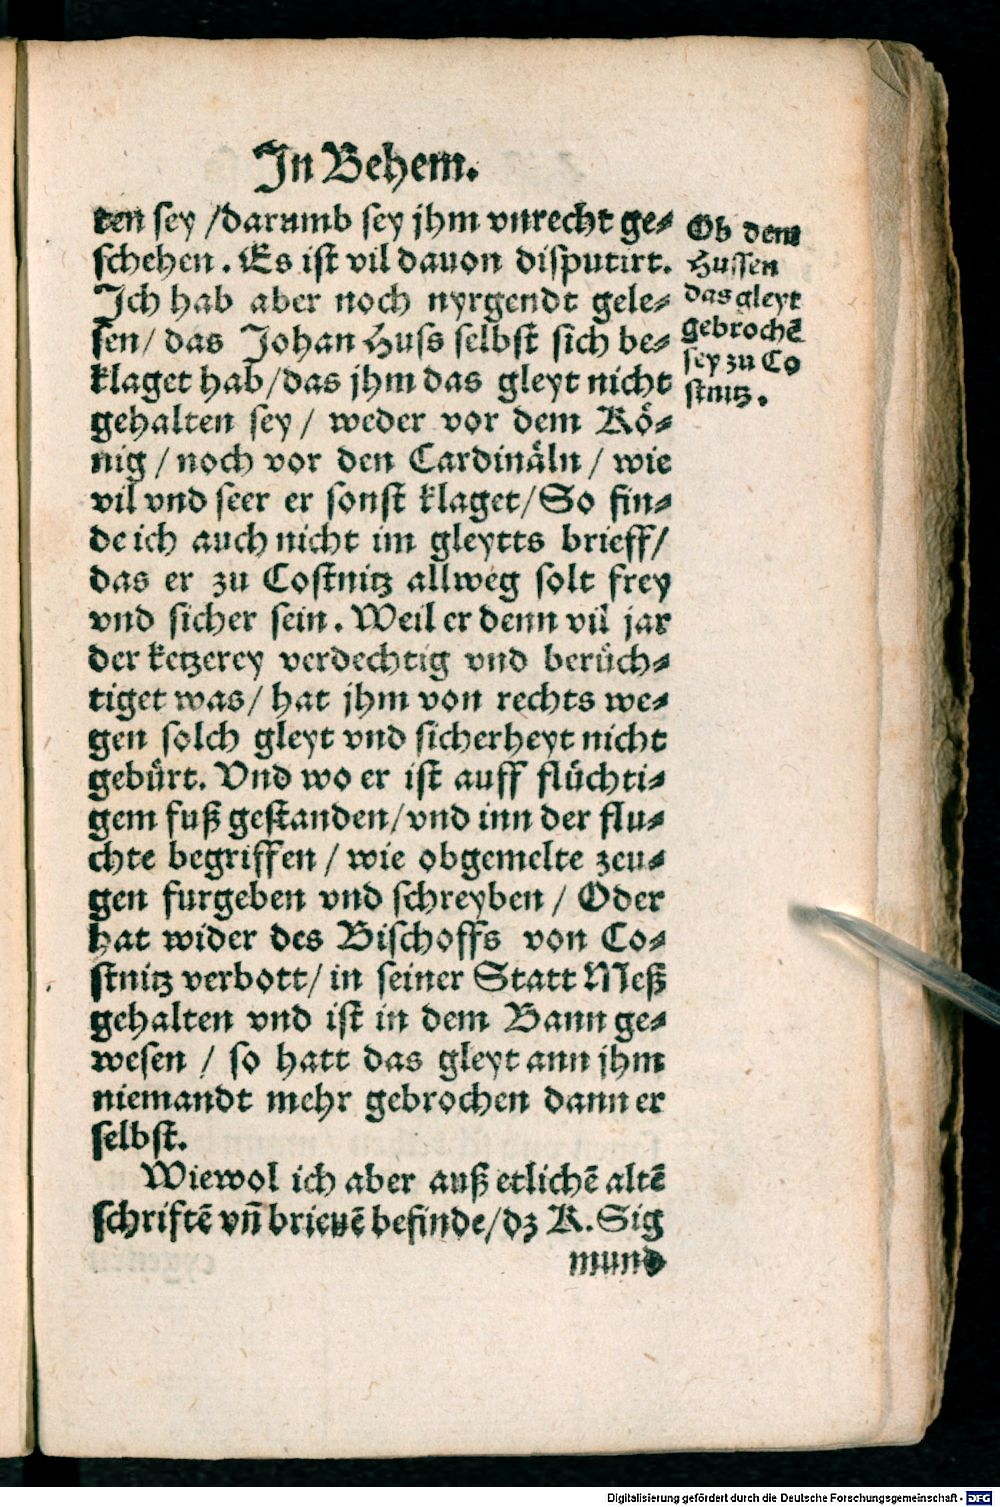 In Behem.
ten sey /darumb sey jhm vnrecht ge⸗
schehen. Es ist vil dauon disputirt.
Ich hab aber noch nyrgendt gele⸗
sen/ das Johan Huss selbst sich be⸗
klaget hab/das jhm das gleyt nicht
gehalten sey/ weder vor dem Kö⸗
nig /noch vor den Cardinäln/ wie
vil vnd seer er sonst klaget/So fin⸗
de ich auch nicht im gleytts brieff/
das er zu Costnitz allweg solt frey
vnd sicher sein. Weil er denn vil jar
der ketzerey verdechtig vnd berüch⸗
tiget was/ hat jhm von rechts we⸗
gen solch gleyt vnd sicherheyt nicht
gebürt. Vnd wo er ist auff flüchti⸗
gem fuß gestanden/vnd inn der flu⸗
chte begriffen /wie obgemelte zeu⸗
gen furgeben vnd schreyben / Oder
hat wider des Bischoffs von Co⸗
stnitz verbott/ in seiner Statt Meß
gehalten vnd ist in dem Bann ge⸗
wesen / so hatt das gleyt ann jhm
niemandt mehr gebrochen dann er
selbst.
Wiewol ich aber auß etlichē altē
schriftē vñ brieuē befinde/dz K. Sig
mund
Ob dem
Hussen
das gleyt
gebrochē
sey zu Co
stnitz.
Digitalisierung gefördert durch die Deutsche Forschungsgemeinschaft - DFG